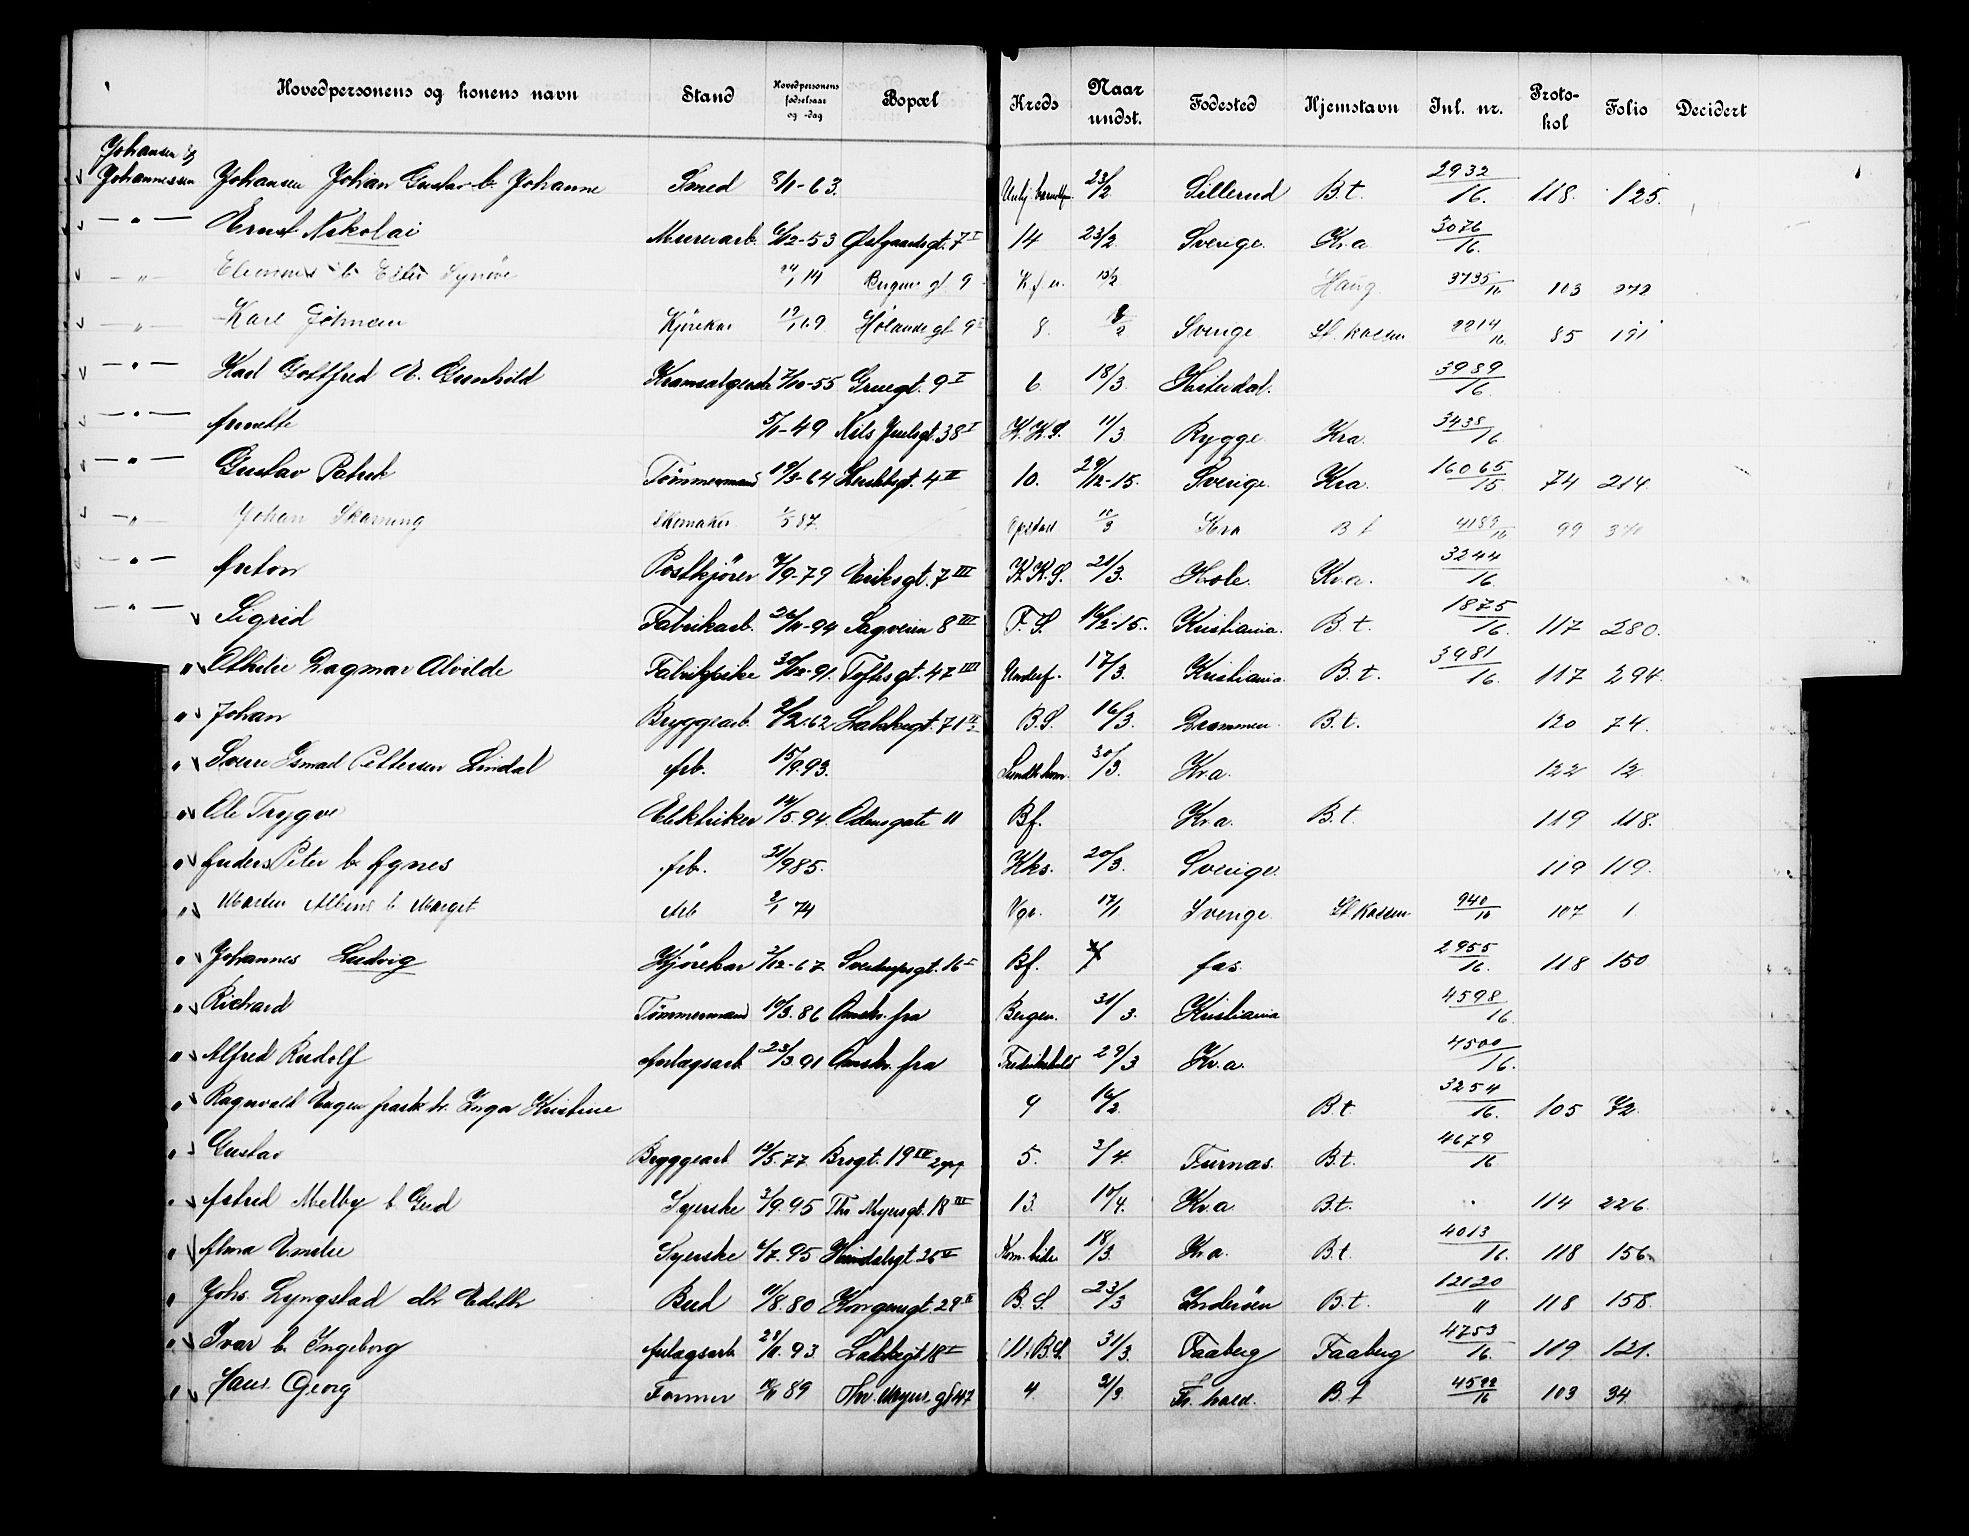 Hovedpersonens og konens navn Stand Hovedpersonens fødselsaar og -dag Bopæl Kreds Naar undst. Fødested Hjemstavn Inl. nr. Protokol Folio Decidert
Johansen og
Johannessen Johansen Johan Gustav b. Johanne Smed 8/11-63. 23/2 Sillerud B.t. 2932/16. 118. 125.
— " — Ernst Nikolai Murerarb. 6/12-53 Østgaardsgt. 7 I 14 23/2 Sverige. Kr.a 3076/16.
— " — b. Synöve 14 Bergens gt. 9 K.f.u. Haug. 3735/16 103 272
— " — Karl Johnsen Kjørekar Hølands gt. 9 8. Sverige St. kassen 2214/16. 85 191
— " — Karl Gottfred E. Gunhild 7/10-55 Gruegt. 9 I 6 18/3. Hitterdal. 3989/16.
— " — Annette 5/11-49 Nils Juelsgt. 38 I K.K.S. 11/3 Rygge Kra. 3438/16.
— " — Gustav Patrik Tømmermand 19/3-64 4 II 10. 29/12-15. Sverige. Kra. 16065/15 74 214.
— " — Johan Skarning Skomaker 87. Opsdal 11/3 Kra B t 4189/16 99 370
— " — Anton Postkjører 7/9-79 Eriksgt. 7 III K.K.S. 21/3. Hole. Kr.a. 3244/16.
— " — Sigrid Fabrikarb. 26/11-94 Sagveien 8 III F.S. 16/2-15. Kristiania. B.t. 1875/16. 117 280.
" Othelie Dagmar Alvilde Fabrikpike 30/12-91. Toftesgt. 47 III Undersf. 17/3. Kristiania B.t. 3981/16. 117 294.
" Johan Bryggearb. 2/2.62 Lakkegt. 71 II B.S. 16/3. Drammen. B.t. 120 74.
" Sverre Ismael Pettersen Lindal Arb. 15/9.93. 30/3. Kr.a. 122 12.
" Ole Trygve Elektriker 14/5.94. Odinsgate 11 Bf. Kr.a. B.t. 119 118.
" Anders Peter b. Agnes Arb. 985. Kks. 20/3. Sverige. 119 119.
" Martin Albins b Marget Arb 2/1 74 Vgr. 17/1 Sverige. St kassen 940/16 107 1.
" Johannes Ludvig Kjørekar 3/12-67. Sverdrupsgt. 16 I Bf. fas. 2955/16. 118 150
" Richard Tømmermand 19/3.86 Omskr. fra Bergen. 31/3. Kristiania 4598/16.
" Alfred Rudolf Anlægsarb. 23/3.91 Omskr. fra Fredrikshald 29/3 Kr.a. 4500/16.
" Ragnvald Eugen frask. h. Inga Kristine 9 14/2. B.t. 3254/16. 105 72.
" Gustav Bryggearb. 12/5.77. Brogt. 19 IV 5. 3/4. Furnæs. B.t. 4679/16
" Astrid Melby b. Gerd Syerske 3/9.95 Thv. Myersgt. 18 III 13. 10/4. Kr.a. B.t. " 114 226.
" Alma Emilie Syerske 6/7.95 25 II 18/3. Kr.a. B.t. 4013/16. 118 156.
" Johs. Lyngstad dtr Edith Bud 11/8.80 Kongensgt. 29 II B.S. 23/3 Inderøen B.t. 12120/" 118 158.
" Ivar b. Ingeborg Anlægsarb. 28/11.93 Lakkegt. 18 I U.B.S. 31/3. Faaberg Faaberg 4753/16. 119 121.
" Hans Georg Former 89 Thv. Meyers gt 47 4. 31/3. Fr. hald. B.t 4522/16 103 34.